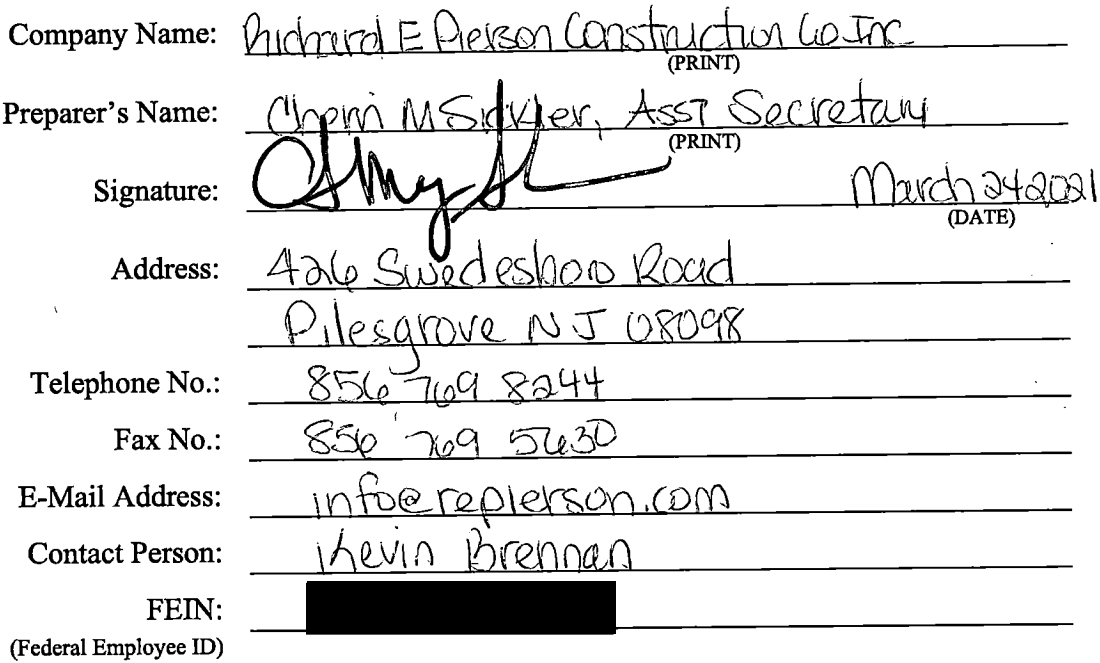 Company Name: Richard E Pierson Construction Co Inc
(PRINT)
Preparer's Name: Cherri M Sickler, Asst Secretary
(PRINT)
Signature: March 24 2021
(DATE)
Address: 426 Swedesboro Road
Pilesgrove NJ 08098
Telephone No.: 856 769 8244
Fax No.: 856 769 5630
E-Mail Address: info@repierson.com
Contact Person: Kevin Brennan
FEIN:
(Federal Employee ID)